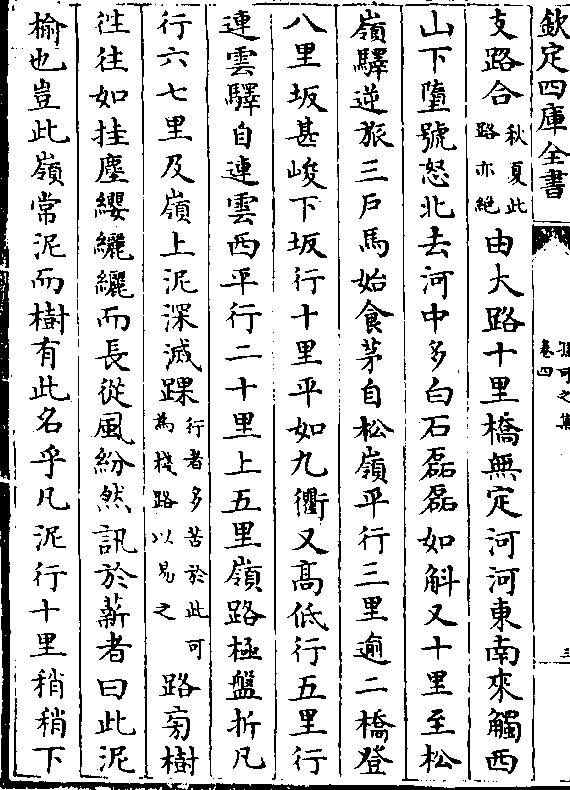 欽定四庫全書
孫可之集
卷四
三
支路合秋夏此路亦絶由大路十里橋無定河河東南來觸西
山下墮號怒北去河中多白石磊磊如斛又十里至松
嶺驛逆旅三戶馬始食茅自松嶺平行三里逾二橋登
八里坂甚峻下坂行十里平如九衢又髙低行五里行
連雲驛自連雲西平行二十里上五里嶺路極盤折凡
行六七里及嶺上泥深滅踝行者多苦於此可為棧路以易之路旁樹
往往如挂塵纓纚纚而長從風紛然訊於薪者曰此泥
榆也豈此嶺常泥而樹有此名乎凡泥行十里稍稍下